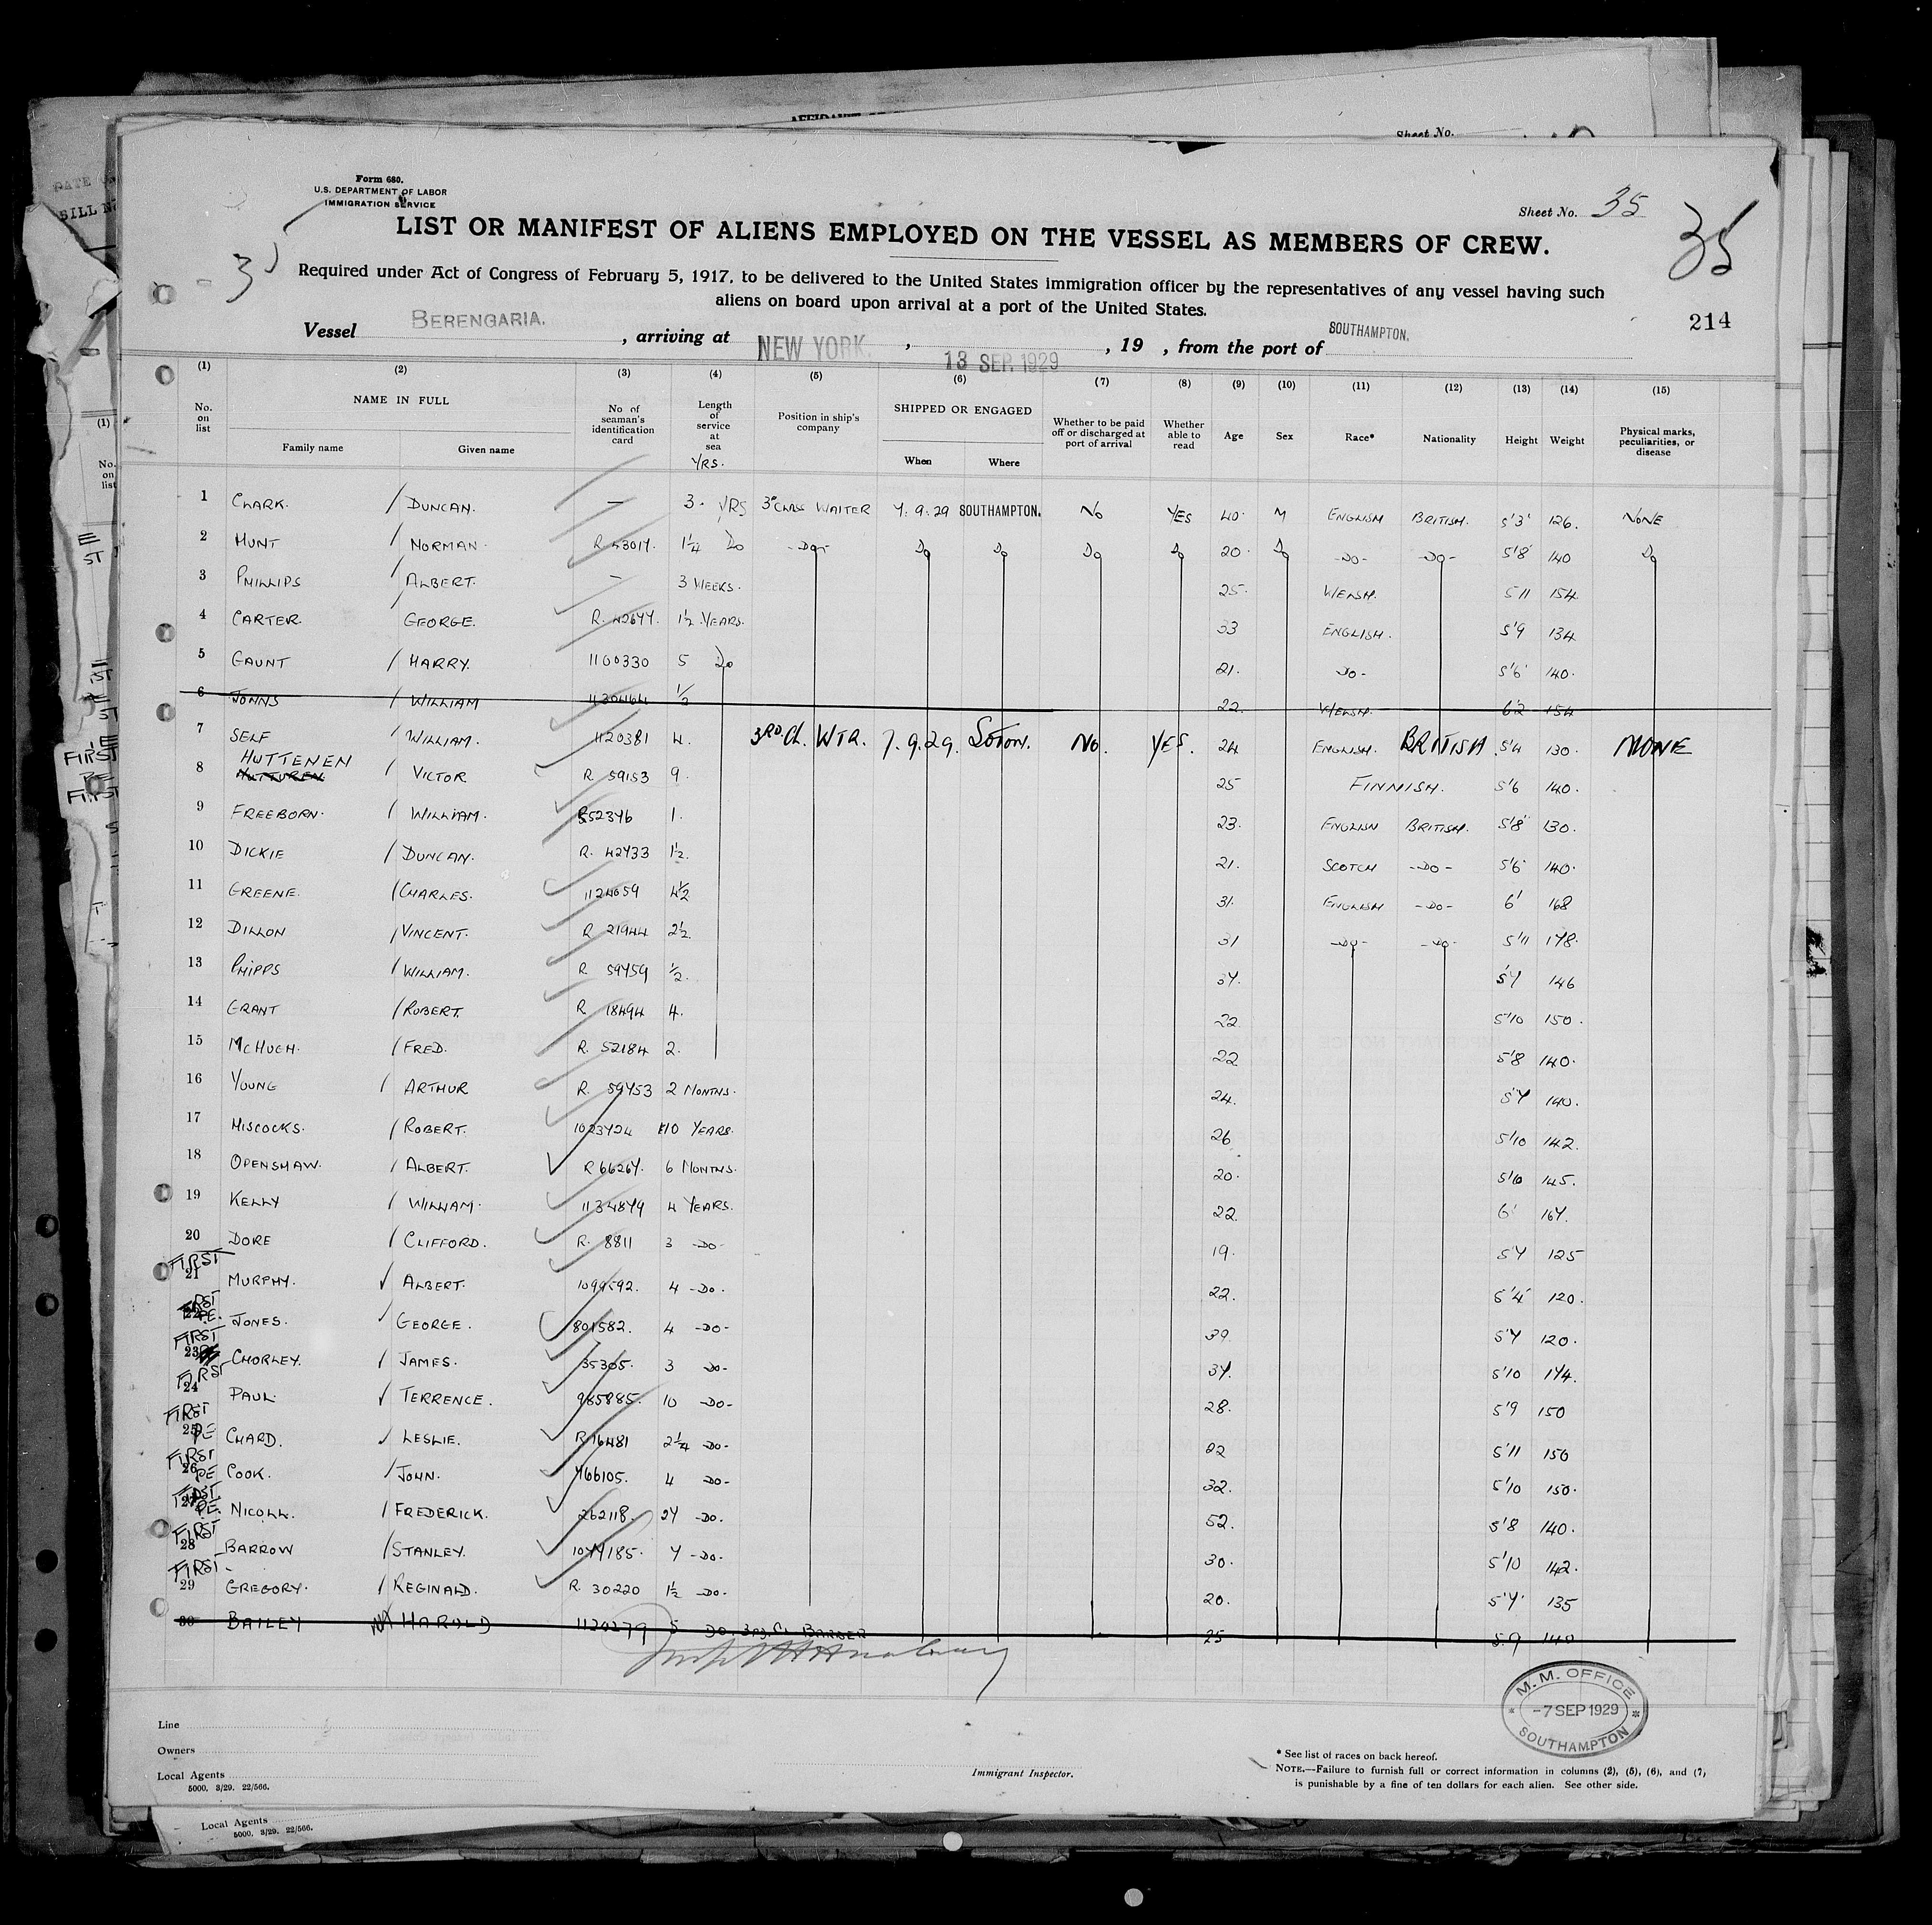 AFFIDAVIT OF
Sheet No.
Form 680.
U.S. DEPARTMENT OF LABOR
IMMIGRATION SERVICE
Sheet No. 35
35
LIST OR MANIFEST OF ALIENS EMPLOYED ON THE VESSEL AS MEMBERS OF CREW.
Required under Act of Congress of February 5, 1917, to be delivered to the United States immigration officer by the representatives of any vessel having such
aliens on board upon arrival at a port of the United States.
214
Vessel BERENGARIA. , arriving at NEW YORK. , 13 SEP. 1929 , 19 , from the port of SOUTHAMPTON.
(1) (2) (3) (4) (5) (6) (7) (8) (9) (10) (11) (12) (13) (14) (15)
No. on list NAME IN FULL Family name Given name No. of seaman's identification card Length of service at sea YRS. Position in ship's company SHIPPED OR ENGAGED When Where Whether to be paid off or discharged at port of arrival Whether able to read Age Sex Race* Nationality Height Weight Physical marks, peculiarities, or disease
1 CLARK. / DUNCAN. — 3. YRS 3° CLASS WAITER 7.9.29 SOUTHAMPTON. NO YES 40. M ENGLISH BRITISH. 5'3' 126. NONE
2 HUNT / NORMAN. R 53017. 1¼ Do -Do- Do Do Do Do 20. Do -DO- -DO- 5'8' 140 Do
3 PHILLIPS / ALBERT. — 3 WEEKS. 25. WELSH. 5 11 154.
4 CARTER. / GEORGE. R. 42677. 1½ YEARS. 33 ENGLISH. 5'9 134
5 GAUNT / HARRY. 1100330 5 Do 21. DO- 5'6' 140.
6 JOHNS / WILLIAM 1130464 ½ 22. WELSH. 6'2 154
7 SELF / WILLIAM. 1120381 4. 3RD. CL. WTR. 7.9.29. SOTON. NO. YES. 24 ENGLISH. BRITISH. 5'4 130. NONE
HUTTENEN
8 / VICTOR R 59153 9. 25 FINNISH. 5'6 140.
9 FREEBORN. / WILLIAM. R52376 1. 23. ENGLISH BRITISH. 5'8" 130.
10 DICKIE / DUNCAN. R. 42733 1½. 21. SCOTCH -DO- 5'6' 140.
11 GREENE. / CHARLES. 1124059 4½ 31. ENGLISH -DO- 6' 168
12 DILLON / VINCENT. R 21944 2½. 31 -DO- -DO- 5'11 178.
13 PHIPPS / WILLIAM. R 59759 ½. 37. 5'7 146
14 GRANT / ROBERT. R 18494 4. 22. 5'10 150.
15 MCHUGH. / FRED. R. 52184 2. 22 5'8 140.
16 YOUNG / ARTHUR R. 59753 2 MONTHS. 24. 5'7 140.
17 HISCOCKS. / ROBERT. 1023724 10 YEARS. 26 5'10 142.
18 OPENSHAW. / ALBERT. R 66267. 6 MONTHS. 20. 5'10 145.
19 KELLY / WILLIAM. 1134879 4 YEARS. 22. 6' 167.
20 DORE / CLIFFORD. R. 8811 3 -DO- 19. 5'7 125
FIRST
21 MURPHY. / ALBERT. 1099592. 4 -DO- 22. 5'4' 120.
22 JONES. / GEORGE. 801582. 4 -DO- 39. 5'7 120.
FIRST
23 CHORLEY. / JAMES. 35305. 3 DO- 37. 5'10 174.
FIRST
24 PAUL. / TERRENCE. 985885. 10 -DO- 28. 5'9 150
FIRST
25 PE CHARD. / LESLIE. R 16481 2¼ -DO- 22 5'11 150
FIRST
26 PE COOK. / JOHN. 766105. 4 DO- 32. 5'10 150.
27 PE. NICOLL. / FREDERICK. 262118. 27 -DO. 52. 5'8 140.
FIRST
28 BARROW / STANLEY. 1077185. 7 -DO. 30. 5'10 142.
FIRST
29 GREGORY. / REGINALD. R. 30220 1½ -DO. 20. 5'7' 135
30 BAILEY / HAROLD 1120279 5 DO. 3RD. CL BARBER 25 5.9 140
M. M. OFFICE
-7 SEP 1929
SOUTHAMPTON
Line
Owners
Local Agents
5000. 3/29. 22/566.
Immigrant Inspector.
* See list of races on back hereof.
NOTE.—Failure to furnish full or correct information in columns (2), (5), (6), and (7)
is punishable by a fine of ten dollars for each alien. See other side.
Local Agents
5000. 3/29. 22/566.